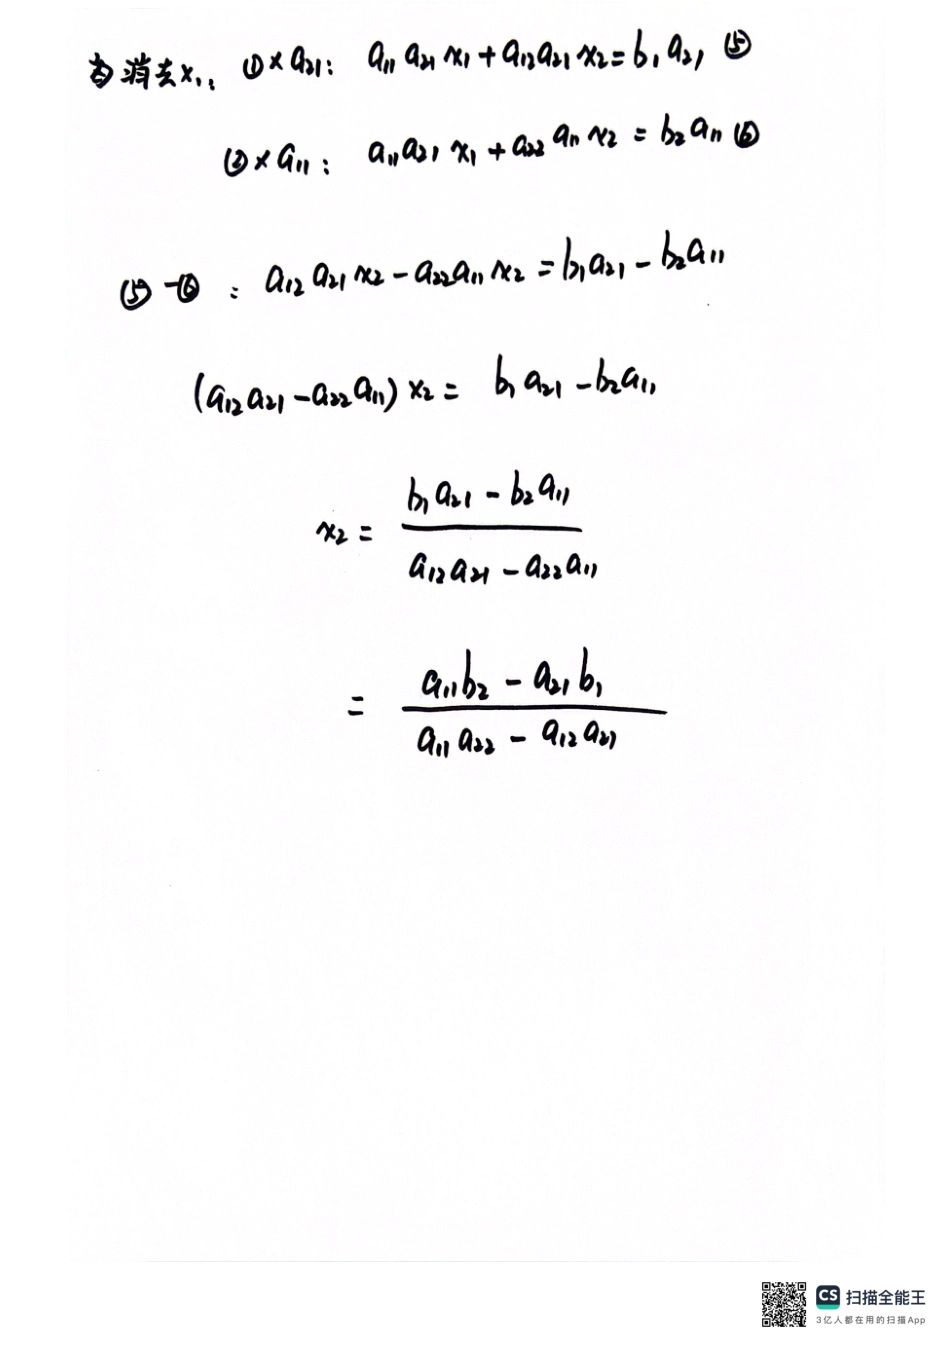 为消去x₁: ①×a₂₁: a₁₁a₂₁x₁+a₁₂a₂₁x₂=b₁a₂₁ ⑤
②×a₁₁: a₁₁a₂₁x₁+a₂₂a₁₁x₂=b₂a₁₁ ⑥
⑤-⑥: a₁₂a₂₁x₂-a₂₂a₁₁x₂=b₁a₂₁-b₂a₁₁
(a₁₂a₂₁-a₂₂a₁₁)x₂=b₁a₂₁-b₂a₁₁
x₂=
b₁a₂₁-b₂a₁₁
a₁₂a₂₁-a₂₂a₁₁
=
a₁₁b₂-a₂₁b₁
a₁₁a₂₂-a₁₂a₂₁
CS 扫描全能王
3亿人都在用的扫描App